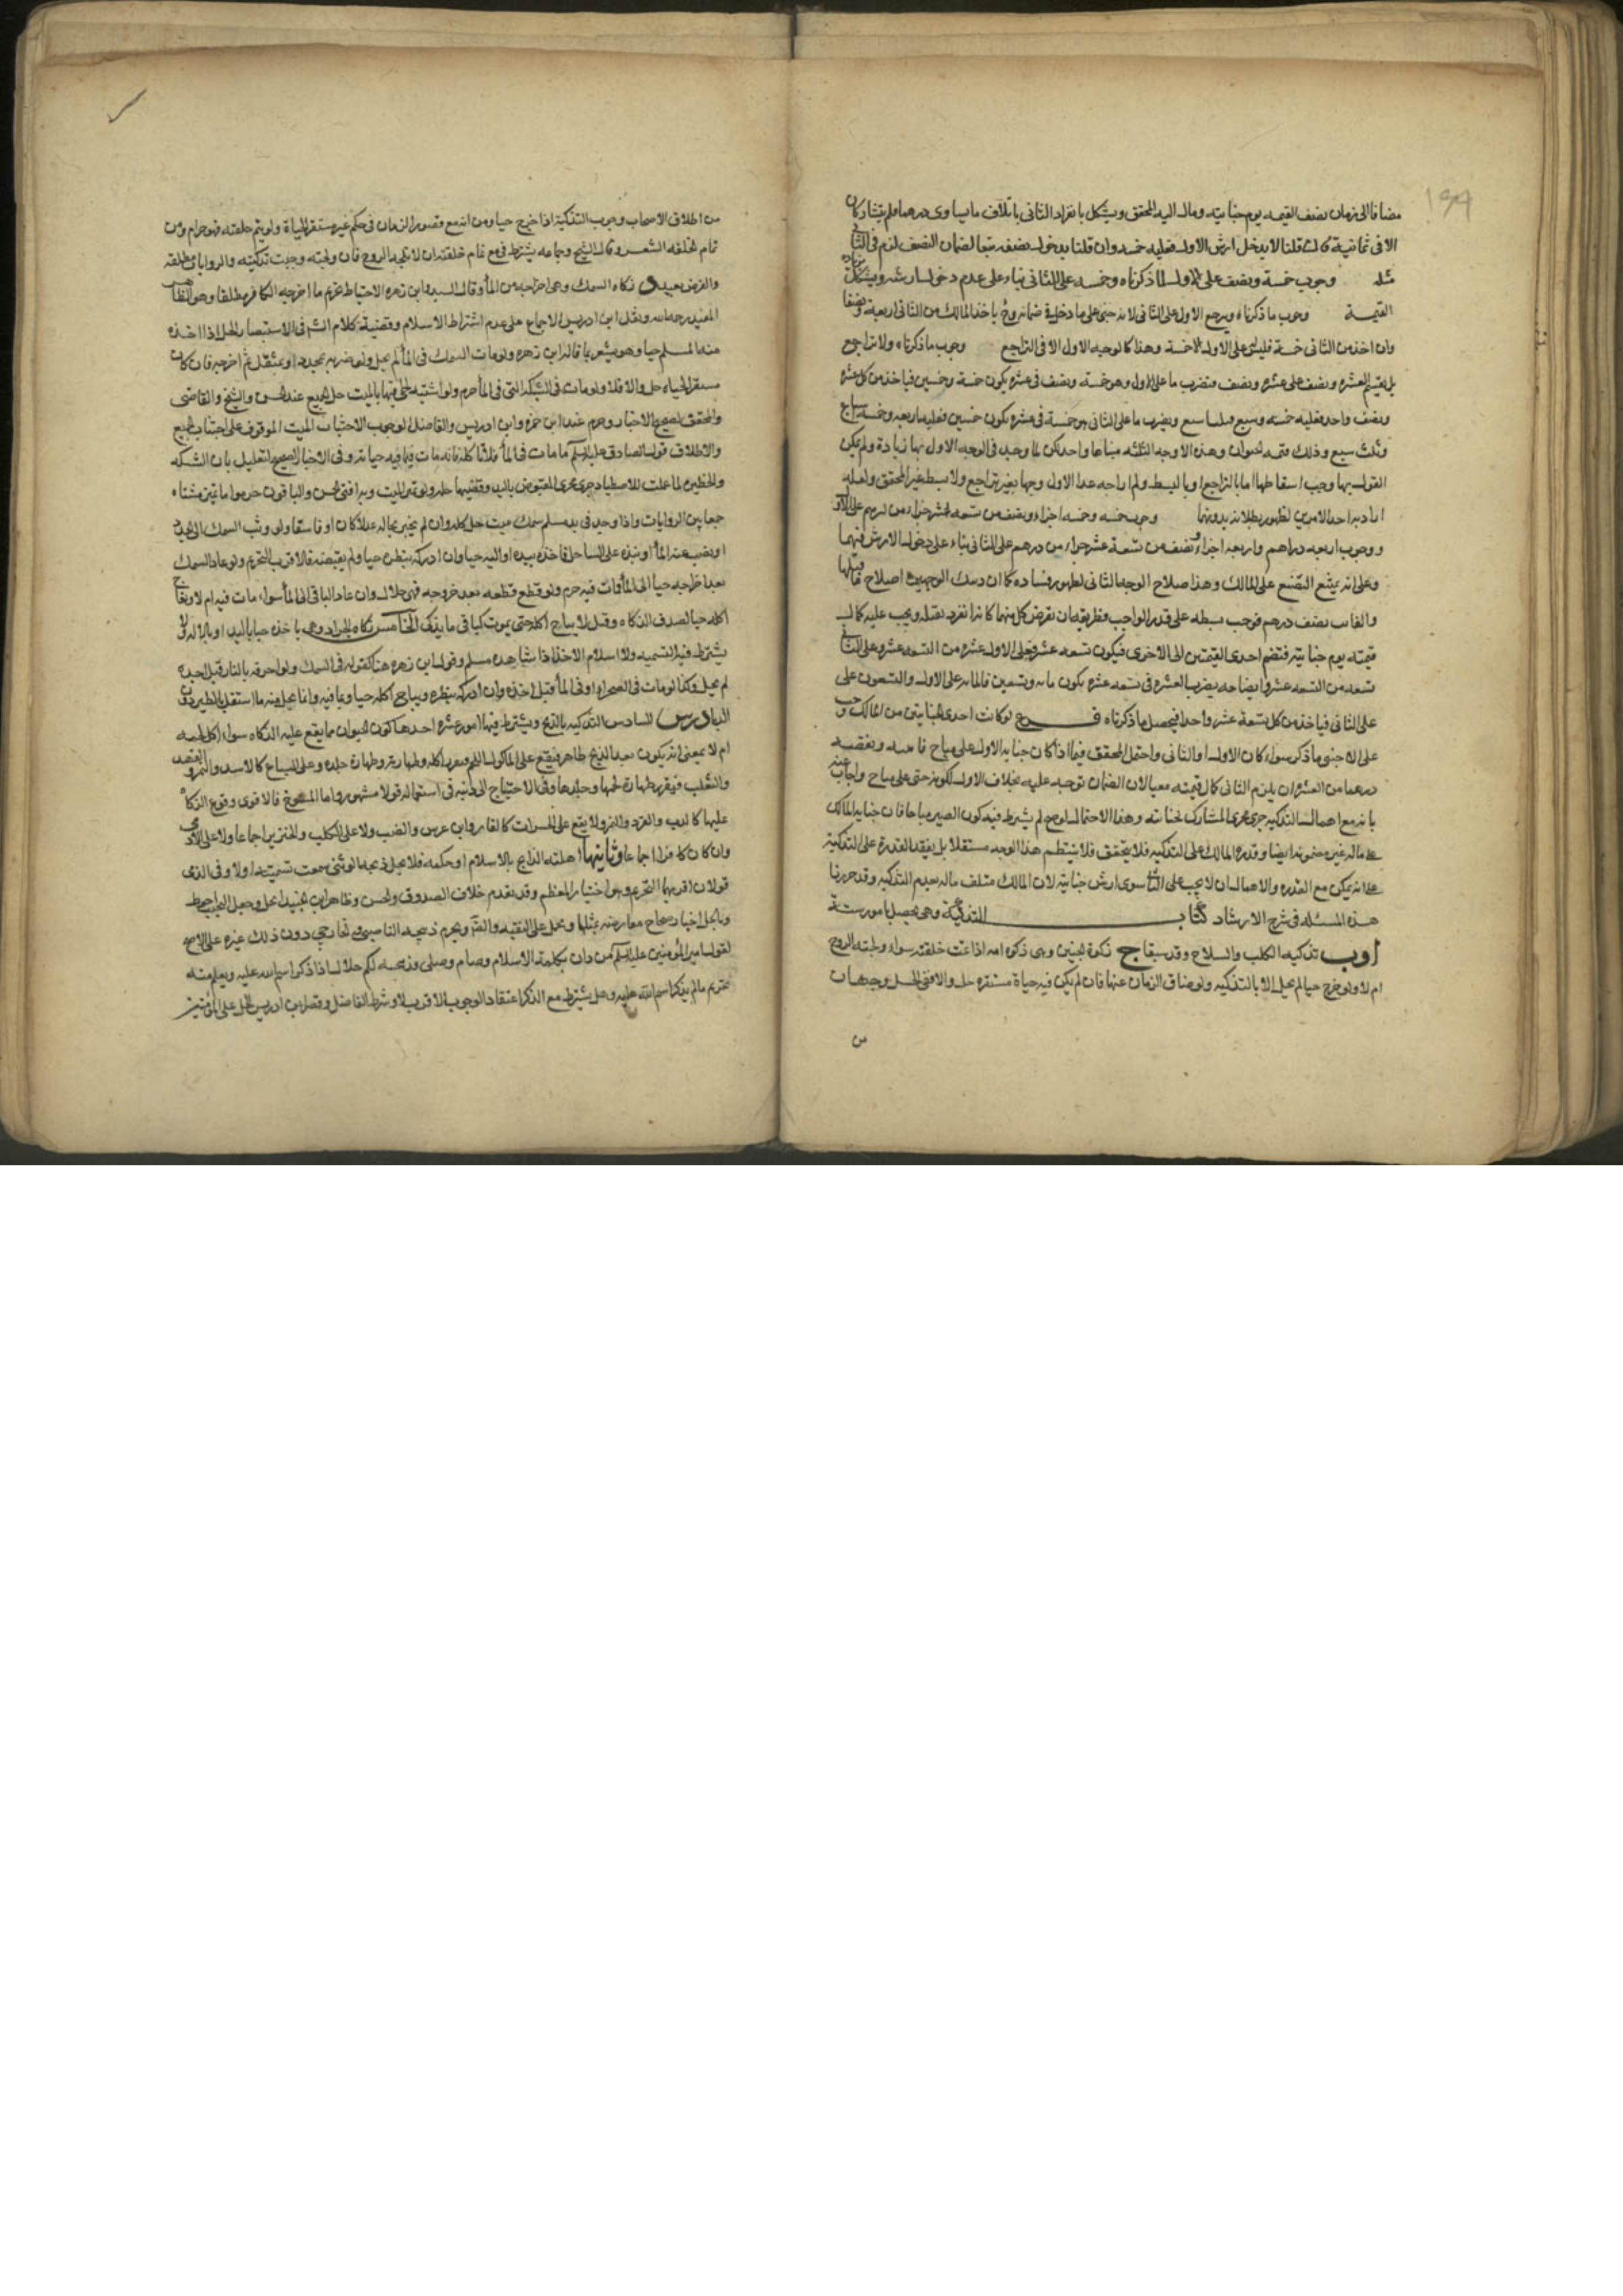 مضافا الى زمان نصف القيمه يوم جنايته ومال اليه المحقق ويشكل بانفراد الثاني باتلاف مايساوى درهما ولم يتشاركا
الا في ثمانية فان قلنا لا يدخل ارش الاول فعليه خمسه وان قلنا بدخول نصفه تبعا لضمان النصف لزم في الثاني
مثله وجوب خمسة ونصف على الاول لما ذكرناه وخمسه على الثاني بناء على عدم دخول ارشه ويشكل بزيادة
القيمة وجوب ما ذكرناه ويرجع الاول على الثاني لانه جنى على ما دخل في ضمانه وح ياخذ المالك من الثاني اربعة ونصفا
وان اخذ من الثاني خمسة فليس على الاول الا خمسة وهذا كالوجه الاول الا في التراجع وجوب ما ذكرناه ولا تراجع
بل يقسم العشره ونصف على عشره ونصف فنضرب ما على الاول وهو خمسة ونصف في عشره يكون خمسة وخمسين فياخذ من كل عشره
ونصف واحد فعليه خمسه وسبع وثلثا سبع ويضرب ما على الثاني وهو خمسة في عشره يكون خمسين فعليه اربعه وخمسه اسباع
وثلث سبع وذلك قيمه الحيوان وهذه الاوجه الثلثه مبناها واحد لكن لما وجد في الوجه الاول بها زيادة ولم يكن
القول بها وجب اسقاطها اما بالتراجع او بالبسط ولم ار احد عد الاول وجها بغير تراجع ولا بسط غير المحقق ولعله
اراد به احد الامرين لظهور بطلانه بدونهما وجوب خمسه وخمسه اجزاء ونصف من تسعه عشر جزاء من درهم على الاول
ووجوب اربعه دراهم واربعه اجزاء ونصف من تسعة عشر جزاء من درهم على الثاني بناء على دخول الارش فيهما
وعلى انه يمتنع التضييع على المالك وهذا صلاح الوجه الثاني لظهور فساده كما ان ذينك الوجهين اصلاح ما قبلها
والفايت نصف درهم فوجب بسطه على قدر الواجب وطريقه ان نفرض كل منهما كانه انفرد بقتله ويجب عليه كمال
قيمته يوم جنايته فتضم احدى القيمتين الى الاخرى فيكون تسعه عشر فعلى الاول عشره من التسعه عشر وعلى الثاني
تسعه من التسعه عشر وايضاحه يضرب العشره في تسعه عشره يكون مايه وتسعين فالمايه على الاول والتسعون على
على الثاني فياخذ من كل تسعة عشر واحدا فيحصل ما ذكرناه فرع لو كانت احدى الجنايتين من المالك وجب
على الاجنبي ما ذكر سواء كان الاول او الثاني واحتمل المحقق فيما اذا كان جنايه الاول على مباح
درهما من العشره ان يلزم الثاني كمال قيمته معيبا لان الضمان توجه عليه بخلاف الاول لكونه جنى على مباح واجاب عنه
بانه مع اهمال التذكيه جرى مجرى المشارك بجنايته وهذا الاحتمال لو صح لم يشترط فيه كون الصيد مباحا فان جنايه المالك
على ماله غير مضمونه ايضا وقدره المالك على التذكيه فلا يتحقق فلا ينتظم هذا الوجه مستقلا بل يفيد القدرة على التذكية
على انه يمكن مع القدره والاهمال ان لا يجب على الثاني سوى ارش جنايته لان المالك متلف ماله بعدم التذكيه وقد حررنا
هذه المسئله في شرح الارشاد كتاب التذكية وهي تحصل بامور ستة
ا وب تذكيه الكلب والسلاح وقد سبقا ج ذكوة الجنين وهي ذكوة امه اذا تمت خلقته سواء ولجته الروح
ام لا ولو خرج حيا لم يحل الا بالتذكيه ولو ضاق الزمان عنها فان لم يكن فيه حياة مستقره حل والا ففي الحل وجهان
من
من اطلاق الاصحاب وجوب التذكية اذا خرج حيا ومن انه مع قصور الزمان في حكم غير مستقر الحياة ولو لم يتم خلقته فهو حرام ومن
تمام الخلقه الشعر وقال الشيخ وجماعه يشترط في مع تمام خلقته ان لا تلجه الروح فان ولجته وجبت تذكيته والروايات مطلقه
والفرض بعيد د ذكاه السمك وهي اخراجه من الماء وقال السيد ابن زهره الاحتياط تحريم ما اخرجه الكافر مطلقا وهو ظاهر
المفيد رحمه الله ونقل ابن ادريس الاجماع على عدم اشتراط الاسلام وقضية كلام الشيخ في الاستبصار الحل اذا اخذه
منه المسلم حيا وهو يشعر بما قاله ابن زهره ولو مات السمك في الماء لم يحل ولو ضربه بحديده او بمثقل ثم اخرجه فان كان
مستقر الحياه حل والا فلا ولو مات في الشبكه التي في الماء حرم ولو اشتبه الحي فيها بالميت حل الجميع عند الحسن والشيخ والقاضي
والمحقق لصحيح الاخبار وحرم عند ابن حمزه وابن ادريس والفاضل لوجوب الاجتناب الميت الموقوف على اجتناب الجميع
والاطلاق قول الصادق عليه السلم ما مات في الماء فلا تاكله فانه مات فيما فيه حياته وفي الاخبار الصحيح التعليل بان الشبكه
والحظيرة لما عملت للاصطياد جرى مجرى المقبوض باليد وقضيتها حله ولو تميز الميت وبه افتى الحسن والباقون حرموا ما تميز مشتاه
جمعا بين الروايات واذا وجد في يد مسلم سمك ميت حل اكله وان لم يخبر بحاله عدلا كان او فاسقا ولو وثب السمك الى الجد
او نضب عنه الماء او نبذه على الساحل فاخذه بيده او اليه حيا وان ادركه بنظره حيا ولم يقبضه فالاقرب التحريم ولو عاد السمك
بعد اخراجه حيا الى الماء فمات فيه حرم ولو قطع قطعه بعد خروجه فهي حلال وان عاد الباقي الى الماء سواء مات فيه ام لا ويباح
اكله حيا لصدق الذكاه وقيل لا يباح اكله حتى يموت كباقي ما يذكى الخامس ذكاه الجراد وهي باخذه حيا باليد او بالاله ولا
يشترط فيه التسميه ولا اسلام الاخذ اذا شاهده مسلم وقول ابن زهره هنا كقوله في السمك ولو احرقه بالنار قبل اخذه
لم يحل وكذا لو مات في الصحراء او في الماء قبل اخذه وان ادركه بنظره ويباح اكله حيا وبما فيه وانما يحل منه ما استقل بالطيران دون
الدبا درس السادس التذكيه بالذبح ويشترط فيها امور عشره احدها كون الحيوان مما يقع عليه الذكاه سواء اكل لحمه
ام لا بمعنى انه يكون بعد الذبح طاهر فيقع على الماكول اللحم فيفيد اكله وطهارته وطهارة جلده وعلى السباع كالاسد والنمر والفهد
والثعلب فيفيد طهارة لحمها وجلدها وفي الاحتياج الى الدبغ في استعماله قولا مشهور واما المسوخ فالاقوى وقوع الذكاه
عليها كالدب والقرد والفيل ولا يقع على الحشرات كالفار وابن عرس والضب ولا على الكلب والخنزير اجماعا ولا على الادمي
وان كان كافرا اجماعا وثانيها اهليه الذابح بالاسلام او حكمه فلا يحل ذبيحه الوثني سمعت تسميته او لا وفي الذمي
قولان اقربهما التحريم وهو اختيار المعظم وقد تقدم خلاف الصدوق والحسن وظاهر ابن الجنيد الحل وجعل التجنب احوط
وبالحل اخبار صحاح معارضه بمثلها وتحمل على التقيه والضرورة ويحرم ذبيحه الناصبي والخارجي دون ذلك غيره على الاصح
لقول امير المؤمنين عليه السلم من دان بكلمة الاسلام وصام وصلى وذبيحته لكم حلال اذا ذكر اسم الله عليه ويعلم منه
تحريم ما لم يذكر اسم الله عليه وهل يشترط مع الذكر اعتقاد الوجوب الاقرب لا وشرط الفاضل وقصر ابن ادريس الحل على المؤمنين